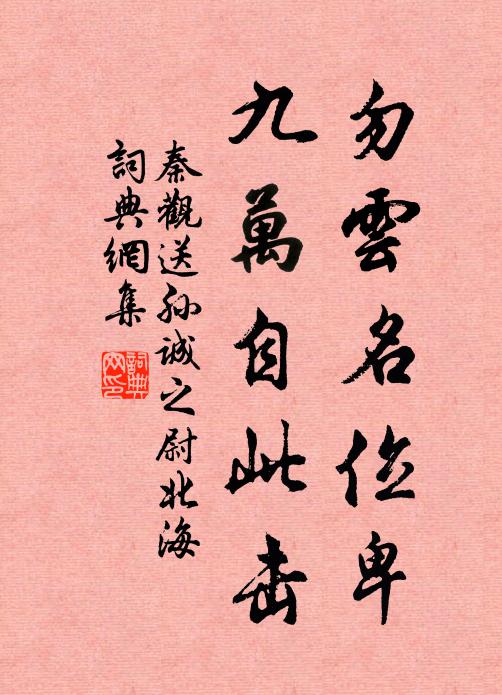 勿雲名位卑
九萬自此击
秦觀送孙誠之尉北海
詞典網集
詞典网印